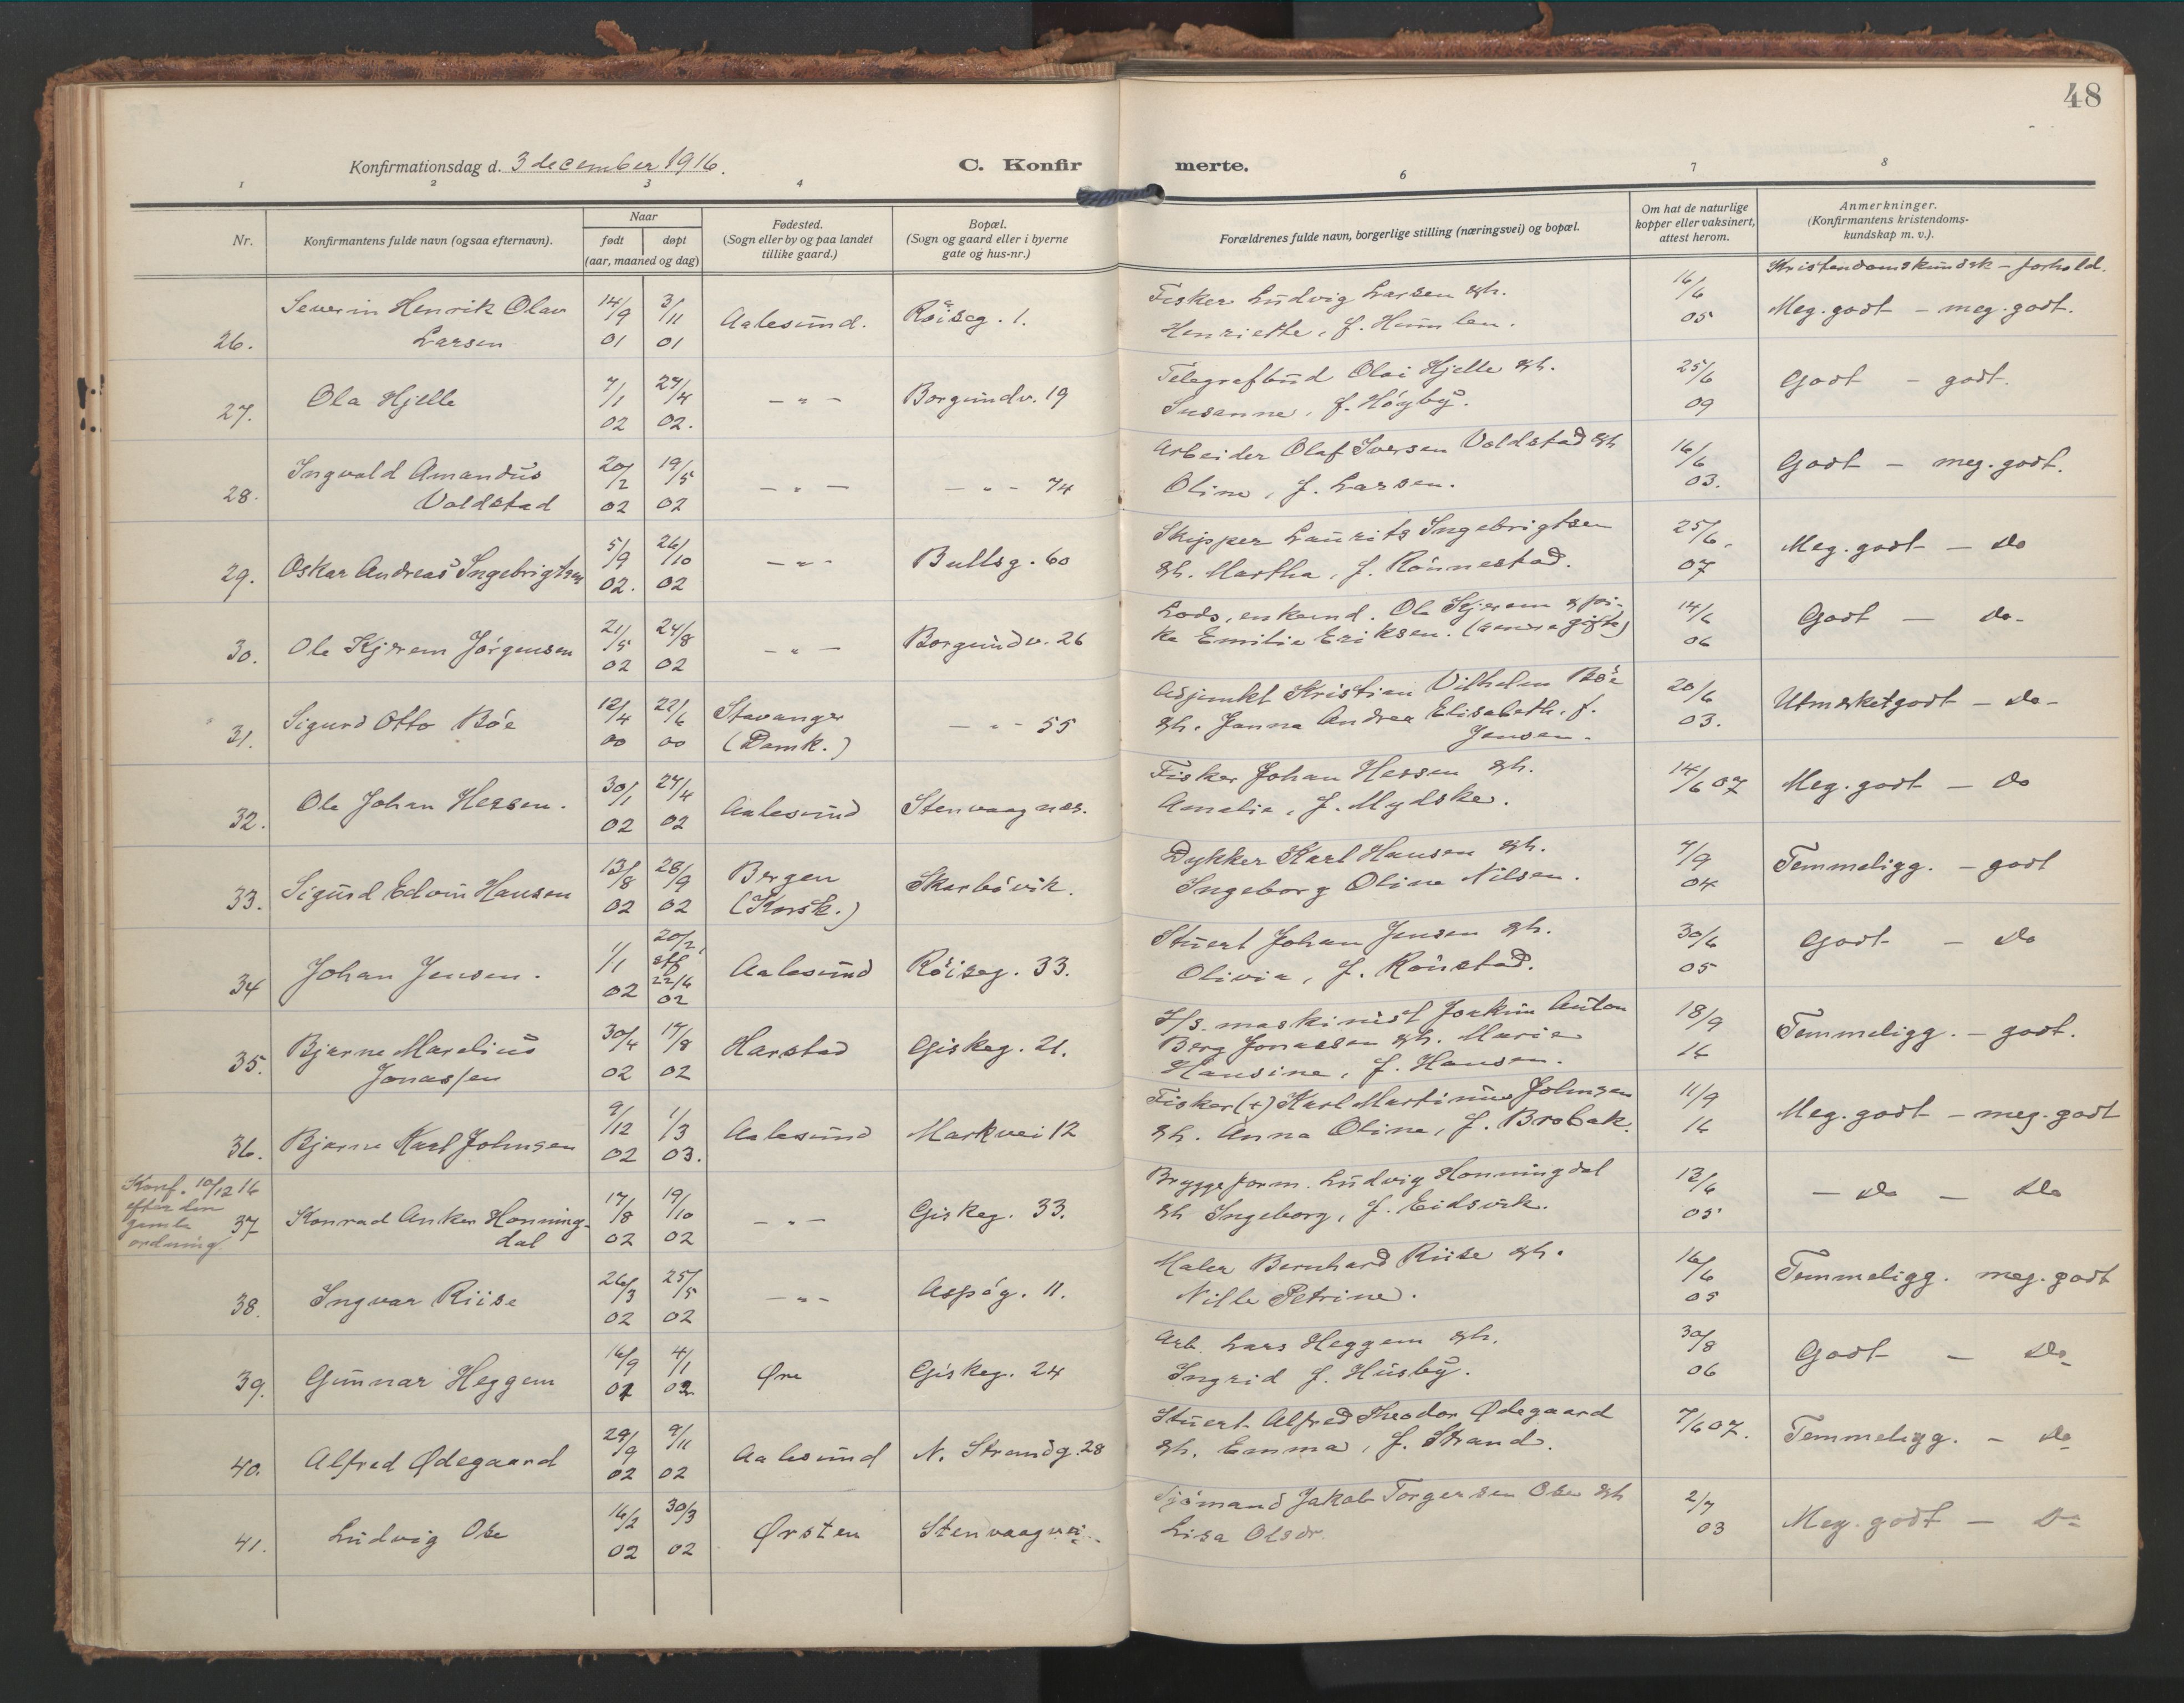 48
Konfirmationsdag d. 3 december 1916.
C. Konfirmerte.
1 2 3 4 6 7 8
Nr.
Konfirmantens fulde navn (ogsaa efternavn).
Naar
født døpt
(aar, maaned og dag)
Fødested.
(Sogn eller by og paa landet
tillike gaard.)
Bopæl.
(Sogn og gaard eller i byerne
gate og hus-nr.)
Forældrenes fulde navn, borgerlige stilling (næringsvei) og bopæl.
Om hat de naturlige
kopper eller vaksinert,
attest herom.
Anmerkninger.
(Konfirmantens kristendoms-
kundskap m. v.).
Kristendomskundsk - forhold.
26. Severin Henrik Olav
Larsen
14/9 01 3/11 01 Aalesund. Röiseg. 1.
Fisker Ludvig Larsen gh.
Henriette, f. Humlen.
16/6 05 Meg. godt - meg. godt.
27. Ola Hjelle 7/1 02 27/4 02. - " - Borgundv. 19
Telegrafbud Olai Hjelle gh.
Susanne, f. Högby.
25/6 09 Godt - godt.
28. Ingvald Amandus
Voldstad
20/2 02 19/5 02 - " - - " - 74
Arbeider Olaf Iversen Voldstad gh
Oline, f. Larsen.
16/6 03. Godt - meg. godt.
29. Oskar Andreas Ingebrigtsen 5/9 02. 26/10 02 - " - Bullsg. 60
Skipper Laurits Ingebrigtsen
gh. Martha, f. Rönnestad.
25/6. 07 Meg. godt - do
30. Ole Kjerem Jörgensen 21/5 02 24/8 02 - " - Borgundv. 26
Lods, enkemd. Ole Kjerem & pi-
ke Emilie Eriksen. (senere gifte)
14/6 06 Godt - do.
31. Sigurd Otto Böe 12/4 00 22/6 00 Stavanger
(Domk.) - " - 55
Adjunkt Kristian Vilhelm Böe
gh. Janna Andrea Elisabeth, f.
Jensen.
20/6 03. Utmerket godt - do -
32. Ole Johan Hessen. 30/1 02 27/4 02 Aalesund Stenvaagnes.
Fisker Johan Hessen gh.
Amalie, f. Mydske.
14/6 07 Meg. godt - do
33. Sigurd Edvin Hansen 13/8 02 28/9 02 Bergen
(Korsk.) Skarbövik.
Dykker Karl Hansen gh.
Ingeborg Oline Nilsen.
7/9 04 Temmeligg. - godt
34 Johan Jensen. 1/1 02 20/2, stf 22/6 02 Aalesund Röiseg. 33.
Stuert Johan Jensen gh.
Olivia, f. Rönstad.
30/6 05 Godt - do
35. Bjarne Marelius
Jonassen
30/4 02 17/8 02 Harstad Giskeg. 21.
H/s. maskinist Joakim Anton
Berg Jonassen gh. Marie
Hansine, f. Hansen.
18/9 16 Temmeligg. - godt.
36. Bjarne Karl Johnsen 9/12 02 1/3 03. Aalesund Markvei 12
Fisker (+) Karl Martinus Johnsen
gh. Anna Oline, f. Brobak.
11/9 16 Meg. godt - meg. godt
Konf. 10/12 16
efter den
gamle
ordning
37 Konrad Anker Honning-
dal
17/8 02 19/10 02 - " - Giskeg. 33.
Bryggeform. Ludvig Honningdal
gh Ingeborg, f. Eidsvik.
12/6 05 - do - do
38. Ingvar Riise 26/3 02 25/5 02 - " - Aspög. 11.
Maler Bernhard Riise gh.
Nille Petrine.
16/6 05 Temmeligg. meg. godt
39. Gunnar Heggem 16/9 01 4/1 02 Øre Giskeg. 24
Arb. Lars Heggem gh.
Ingrid f. Husby.
30/8 06 Godt - do
40. Alfred Ødegaard 29/9 02 9/11 02 Aalesund N. Strandg. 28
Stuert Alfred Theodor Ødegaard
gh. Emma, f. Strand.
7/6 07. Temmeligg. - do
41. Ludvig Ose 16/2 02 30/3 02 Ørsten Stenvaagvei.
Sjömand Jakob Torgersen Ose gh
Lisa Olsdr.
2/7 03 Meg. godt - do